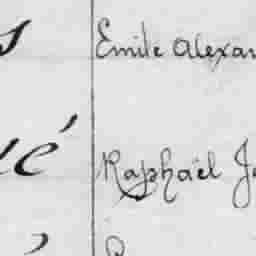 s Emile Alexan
ué Raphaël Je